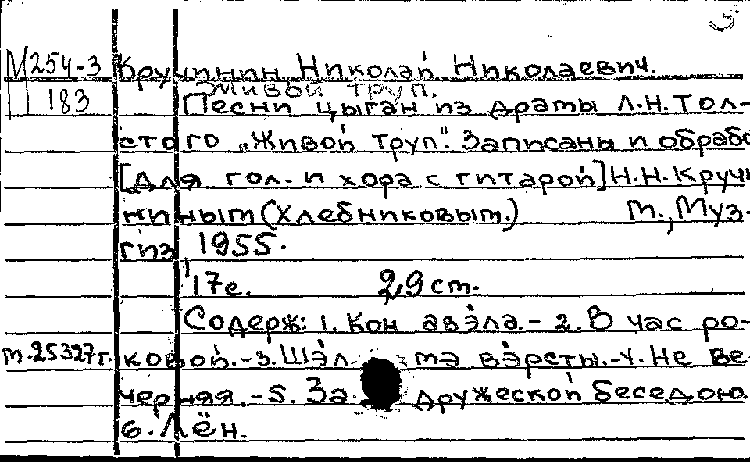 М254-3 Кручинин Николай Николаевич.
Живой труп.
183 Песни цыган из драмы Л.Н. Тол-
стого „Живой труп". Записаны и обрабо
[для гол. и хора с гитарой] Н.Н. Кручи
ниным (Хлебниковым.) М., Муз-
гиз, 1955.
17с. 29 см.
Содерж: 1. Кон авэла. - 2. В час ро-
т.25327г. ковой. - 3. Шэл мэ вэрсты. - 4. Не ве
черняя. - 5. За дружеской беседою
6. Лён.